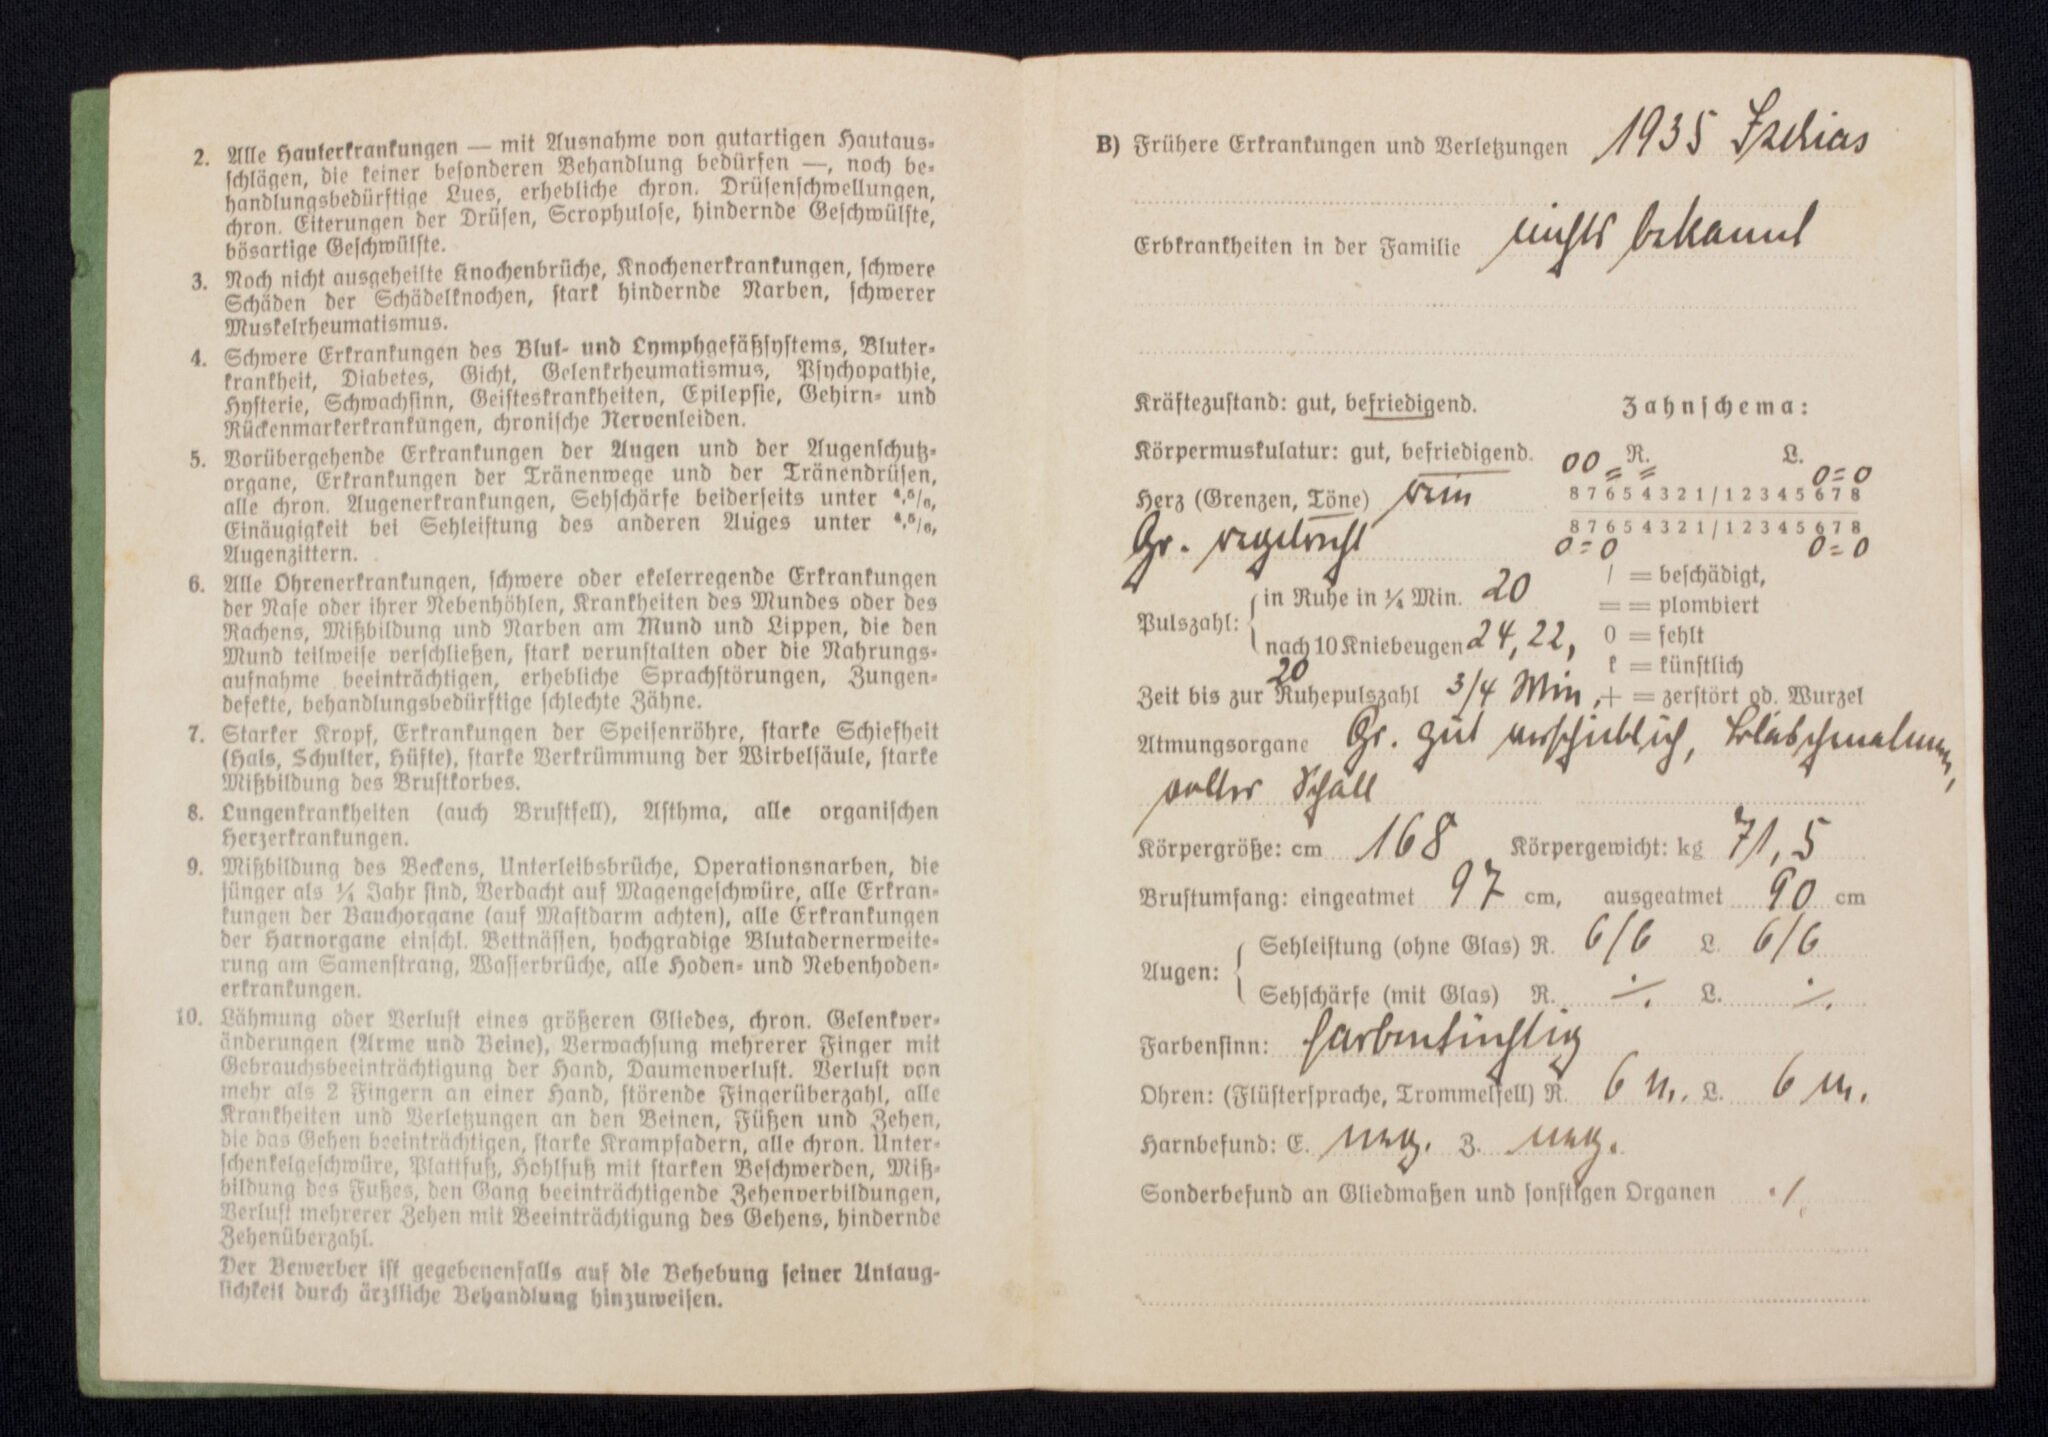 2. Alle Hauterkrankungen — mit Ausnahme von gutartigen Hautaus-
schlägen, die keiner besonderen Behandlung bedürfen —, noch be-
handlungsbedürftige Lues, erhebliche chron. Drüsenschwellungen,
chron. Eiterungen der Drüsen, Scrophulose, hindernde Geschwülste,
bösartige Geschwülste.
3. Noch nicht ausgeheilte Knochenbrüche, Knochenerkrankungen, schwere
Schäden der Schädelknochen, stark hindernde Narben, schwerer
Muskelrheumatismus.
4. Schwere Erkrankungen des Blut- und Lymphgefäßsystems, Bluter-
krankheit, Diabetes, Gicht, Gelenkrheumatismus, Psychopathie,
Hysterie, Schwachsinn, Geisteskrankheiten, Epilepsie, Gehirn- und
Rückenmarkerkrankungen, chronische Nervenleiden.
5. Vorübergehende Erkrankungen der Augen und der Augenschutz-
organe, Erkrankungen der Tränenwege und der Tränendrüsen,
alle chron. Augenerkrankungen, Sehschärfe beiderseits unter
Einäugigkeit bei Sehleistung des anderen Auges unter
Augenzittern.
6. Alle Ohrenerkrankungen, schwere oder ekelerregende Erkrankungen
der Nase oder ihrer Nebenhöhlen, Krankheiten des Mundes oder des
Rachens, Mißbildung und Narben am Mund und Lippen, die den
Mund teilweise verschließen, stark verunstalten oder die Nahrungs-
aufnahme beeinträchtigen, erhebliche Sprachstörungen, Zungen-
defekte, behandlungsbedürftige schlechte Zähne.
7. Starker Kropf, Erkrankungen der Speisenröhre, starke Schiefheit
(Hals, Schulter, Hüfte), starke Verkrümmung der Wirbelsäule, starke
Mißbildung des Brustkorbes.
8. Lungenkrankheiten (auch Brustfell), Asthma, alle organischen
Herzerkrankungen.
9. Mißbildung des Beckens, Unterleibsbrüche, Operationsnarben, die
jünger als ¼ Jahr sind, Verdacht auf Magengeschwüre, alle Erkran-
kungen der Bauchorgane (auf Mastdarm achten), alle Erkrankungen
der Harnorgane einschl. Bettnässen, hochgradige Blutadernerweite-
rung am Samenstrang, Wasserbrüche, alle Hoden- und Nebenhoden-
erkrankungen.
10. Lähmung oder Verlust eines größeren Gliedes, chron. Gelenkver-
änderungen (Arme und Beine), Verwachsung mehrerer Finger mit
Gebrauchsbeeinträchtigung der Hand, Daumenverlust. Verlust von
mehr als 2 Fingern an einer Hand, störende Fingerüberzahl, alle
Krankheiten und Verletzungen an den Beinen, Füßen und Zehen,
die das Gehen beeinträchtigen, starke Krampfadern, alle chron. Unter-
schenkelgeschwüre, Plattfuß, Hohlfuß mit starken Beschwerden, Miß-
bildung des Fußes, den Gang beeinträchtigende Zehenverbildungen,
Verlust mehrerer Zehen mit Beeinträchtigung des Gehens, hindernde
Zehenüberzahl.
Der Bewerber ist gegebenenfalls auf die Behebung seiner Untaug-
lichkeit durch ärztliche Behandlung hinzuweisen.
B) Frühere Erkrankungen und Verletzungen 1935 Ischias
Erbkrankheiten in der Familie nichts bekannt
Kräftezustand: gut, befriedigend.
Zahnschema:
Körpermuskulatur: gut, befriedigend.
R. L.
00 = = 0 = 0
Herz (Grenzen, Töne) rein
8 7 6 5 4 3 2 1 / 1 2 3 4 5 6 7 8
8 7 6 5 4 3 2 1 / 1 2 3 4 5 6 7 8
Gr. regelrecht
0 = 0 0 = 0
/ = beschädigt,
Pulszahl: in Ruhe in ¼ Min. 20
= = plombiert
nach 10 Kniebeugen 24, 22,
0 = fehlt
20
k = künstlich
Zeit bis zur Ruhepulszahl 3/4 Min.
+ = zerstört od. Wurzel
Atmungsorgane Gr. gut verschieblich, Bläschenatmen,
voller Schall
Körpergröße: cm 168 Körpergewicht: kg 71,5
Brustumfang: eingeatmet 97 cm, ausgeatmet 90 cm
Augen: Sehleistung (ohne Glas) R. 6/6 L. 6/6
Sehschärfe (mit Glas) R. ·/. L. ·/.
Farbensinn: farbentüchtig
Ohren: (Flüstersprache, Trommelfell) R. 6 m. L. 6 m.
Harnbefund: E. neg. Z. neg.
Sonderbefund an Gliedmaßen und sonstigen Organen ·/.